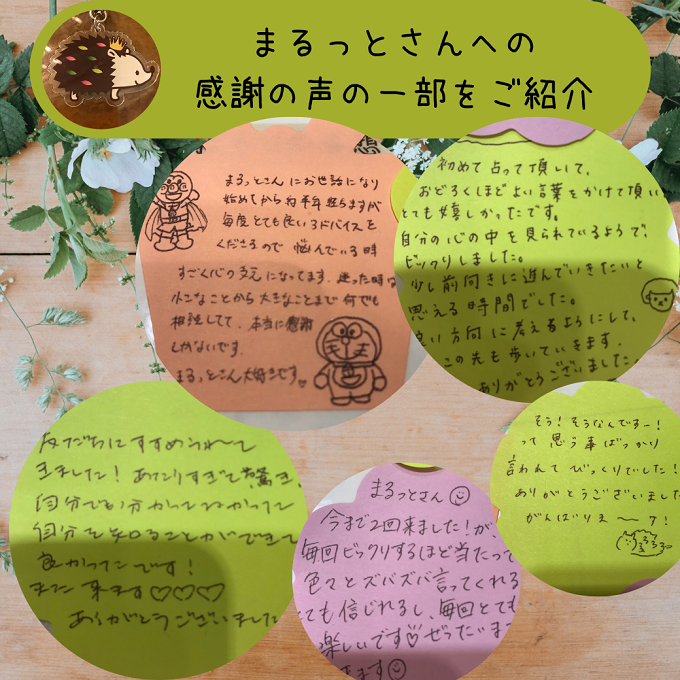 まるっとさんへの
感謝の声の一部をご紹介
まるっとさんにお世話になり
始めてから約半年経ちますが
毎度とても良いアドバイスを
くださるので 悩んでいる時
すごく心の支えになってます。迷った時
小さなことから大きなことまで何でも
相談してて、本当に感謝
しかないです。
まるっとさん大好きです♡
初めて占って頂いて、
おどろくほどよい言葉をかけて頂い
とても嬉しかったです。
自分の心の中を見られているようで、
ビックリしました。
少し前向きに進んでいきたいと
思える時間でした。
良い方向に考えるようにして、
この先も歩いていきます。
ありがとうございました。
友だちにすすめられて
きました!あたりすぎて驚き、
自分でも分かってなかった
自分を知ることができて
良かったです!
また来ます♡♡♡
ありがとうございました
まるっとさん
今まで2回来ました!が、
毎回ビックリするほど当たって
色々とズバズバ言ってくれる
とても信じれるし、毎回とても
楽しいです♡ぜったいま
きます
そう!そうなんですー!
って思う事ばっかり
言われてびっくりでした!
ありがとうございました
がんばりま〜す!